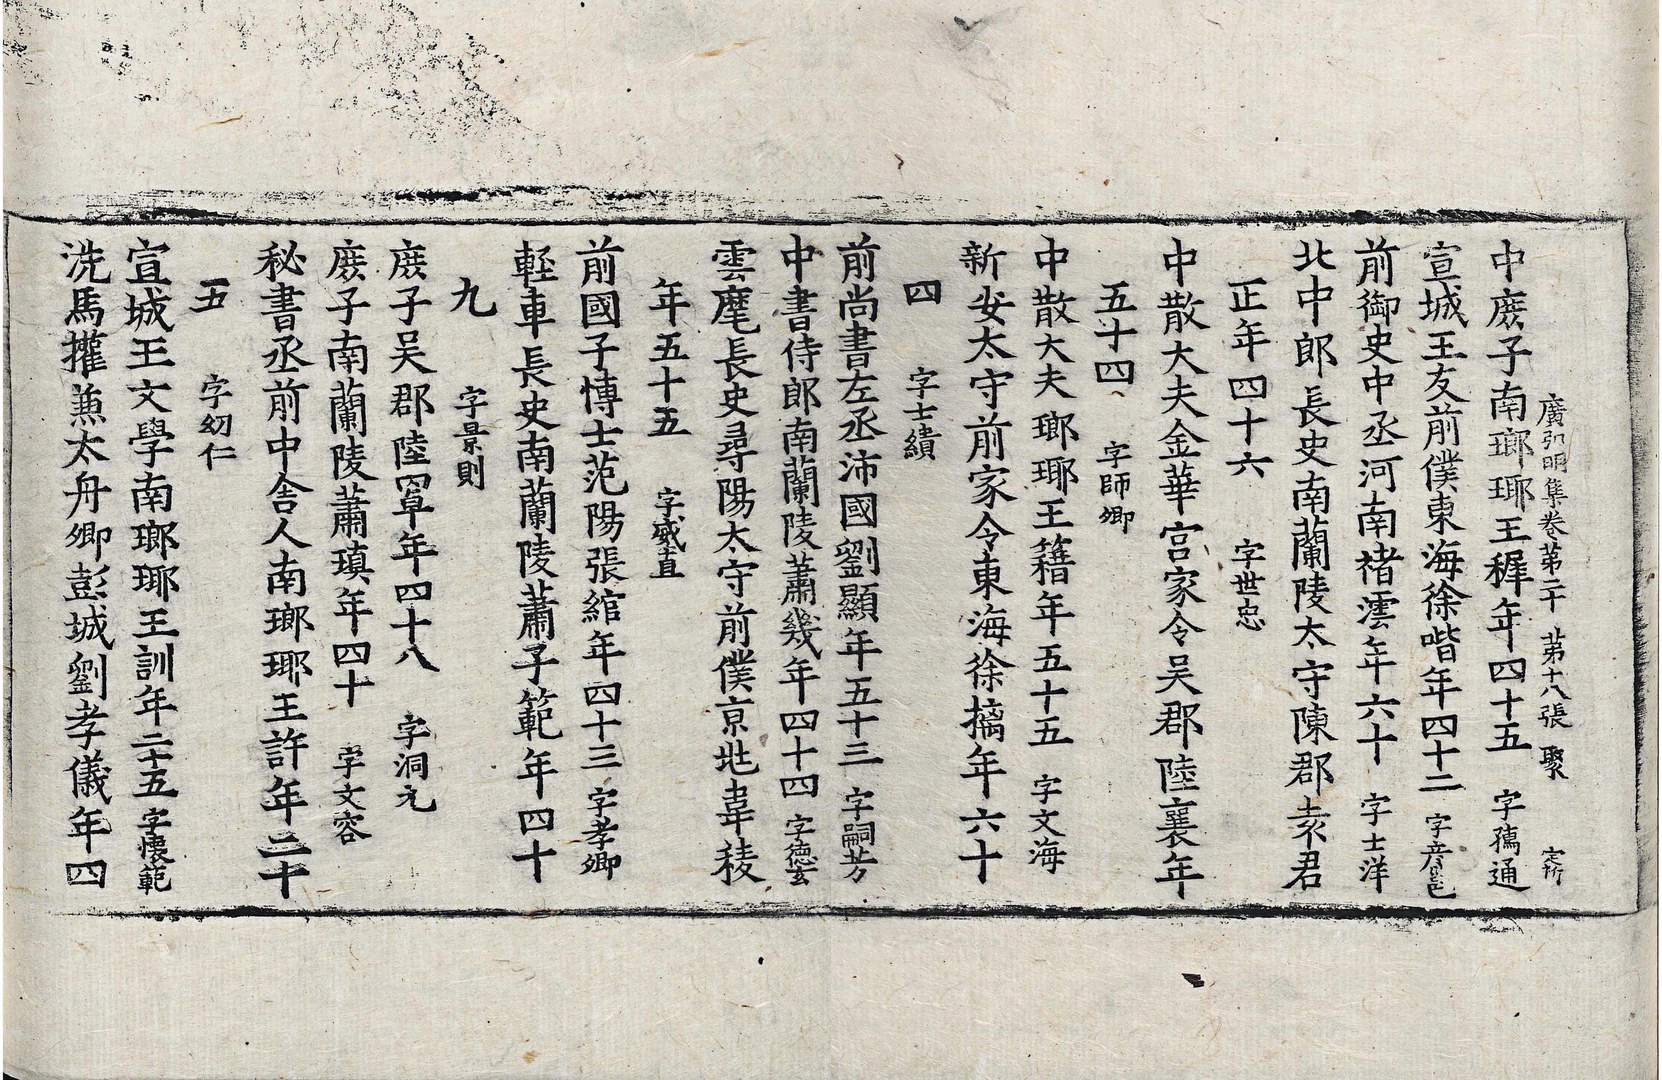 廣弘明集卷第二十 苐十八張 聚
中庻子南瑯瑘王穉年四十五 字孺通
宣城王友前僕東海徐喈年四十二 字彦邕
前御史中丞河南褚澐年六十 字士洋
北中郎長史南蘭陵太守陳郡袁君
正年四十六 字世忠
中散大夫金華宫家令吴郡陸襄年
五十四 字師卿
中散大夫瑯瑘王籍年五十五 字文海
新安太守前家令東海徐摛年六十
四 字士績
前尚書左丞沛國劉顯年五十三 字嗣芳
中書侍郎南蘭陵蕭幾年四十四 字德玄
雲麾長史尋陽太守前僕京兆韋稜
年五十五 字威直
前國子博士范陽張綰年四十三 字孝卿
輕車長史南蘭陵蕭子範年四十
九 字景則
庻子吴郡陸罩年四十八 字洞元
庻子南蘭陵蕭瑱年四十 字文容
秘書丞前中舍人南瑯瑘王許年二十
五 字幼仁
宣城王文學南瑯瑘王訓年二十五 字懷範
洗馬權兼太舟卿彭城劉孝儀年四